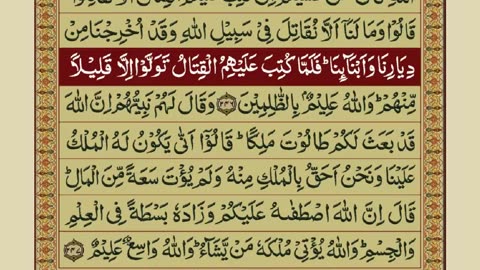 قَالُوۡا وَمَا لَنَاۤ اَلَّا نُقَاتِلَ فِىۡ سَبِيۡلِ اللّٰهِ وَقَدۡ اُخۡرِجۡنَا مِنۡ
دِيَارِنَا وَاَبۡنَآئِنَا ؕ فَلَمَّا كُتِبَ عَلَيۡهِمُ الۡقِتَالُ تَوَلَّوۡا اِلَّا قَلِيۡلًا
مِّنۡهُمۡ ؕ وَاللّٰهُ عَلِيۡمٌۢ بِالظّٰلِمِيۡنَ ﴿۲۴۶﴾ وَقَالَ لَهُمۡ نَبِيُّهُمۡ اِنَّ اللّٰهَ
قَدۡ بَعَثَ لَـكُمۡ طَالُوۡتَ مَلِكًا ؕ قَالُوۡٓا اَنّٰى يَكُوۡنُ لَهُ الۡمُلۡكُ
عَلَيۡنَا وَنَحۡنُ اَحَقُّ بِالۡمُلۡكِ مِنۡهُ وَلَمۡ يُؤۡتَ سَعَةً مِّنَ الۡمَالِ ؕ
قَالَ اِنَّ اللّٰهَ اصۡطَفٰٮهُ عَلَيۡکُمۡ وَزَادَهٗ بَسۡطَةً فِى الۡعِلۡمِ
وَالۡجِسۡمِ ؕ وَاللّٰهُ يُؤۡتِىۡ مُلۡکَهٗ مَنۡ يَّشَآءُ ؕ وَاللّٰهُ وَاسِعٌ عَلِيۡمٌ ﴿۲۴۷﴾